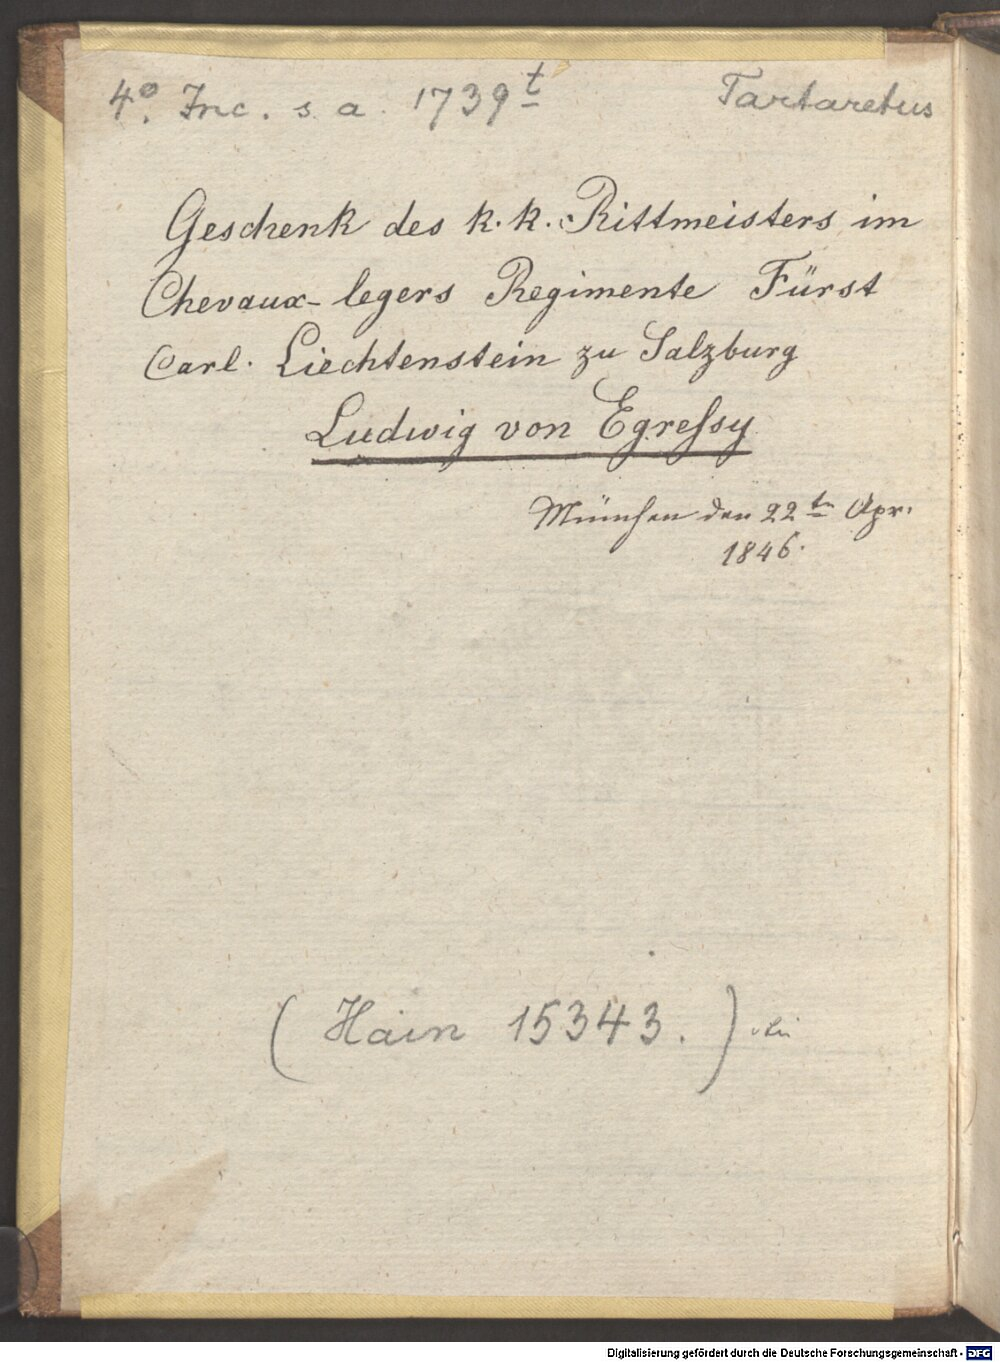 4°. Inc. s. a. 1739 t
Tartaretus
Geschenk des k. k. Rittmeisters im
Chevaux-legers Regimente Fürst
Carl. Liechtenstein zu Salzburg
Ludwig von Egreſsy
München den 22tn Apr.
1846.
(Hain 15343.)
Digitalisierung gefördert durch die Deutsche Forschungsgemeinschaft - DFG